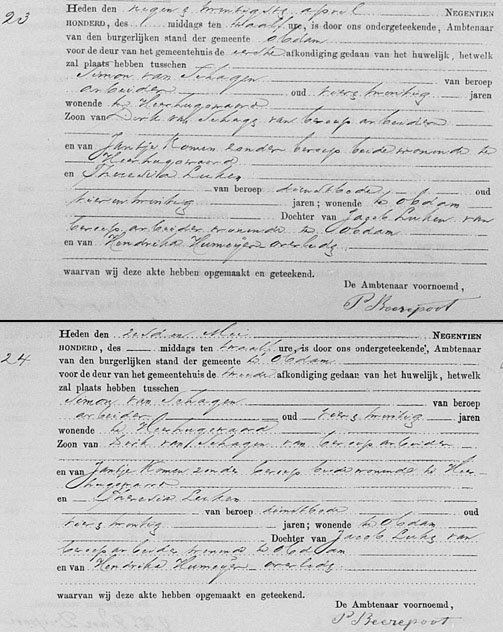 23
Heden den negen en twintigste april NEGENTIEN
HONDERD, des middags ten twaalf ure, is door ons ondergeteekende, Ambtenaar
van den burgerlijken stand der gemeente Obdam
voor de deur van het gemeentehuis de eerste afkondiging gedaan van het huwelijk, hetwelk
zal plaats hebben tusschen
Simon van Schagen van beroep
arbeider oud jaren
wonende te Heerhugowaard
Zoon van Dirk van Schagen van beroep arbeider
en van Jantje Komen zonder beroep beide wonende te
Heerhugowaard
en Theresia Luken
van beroep dienstbode oud
jaren; wonende te Obdam
Dochter van Jacob Luken van
beroep arbeider wonende te Obdam
en van Hendrika Humeijer overleden
waarvan wij deze akte hebben opgemaakt en geteekend.
De Ambtenaar voornoemd,
P Beerepoot
24
Heden den zesden Mei NEGENTIEN
HONDERD, des middags ten twaalf ure, is door ons ondergeteekende, Ambtenaar
van den burgerlijken stand der gemeente Obdam
voor de deur van het gemeentehuis de tweede afkondiging gedaan van het huwelijk, hetwelk
zal plaats hebben tusschen
Simon van Schagen van beroep
arbeider oud jaren
wonende te Heerhugowaard
Zoon van Dirk van Schagen van beroep arbeider
en van Jantje Komen zonder beroep beide wonende te Heer-
hugowaard
en Theresia Luken
van beroep dienstbode oud
jaren; wonende te Obdam
Dochter van Jacob Luken van
beroep arbeider wonende te Obdam
en van Hendrika Humeijer overleden
waarvan wij deze akte hebben opgemaakt en geteekend.
De Ambtenaar voornoemd,
P Beerepoot